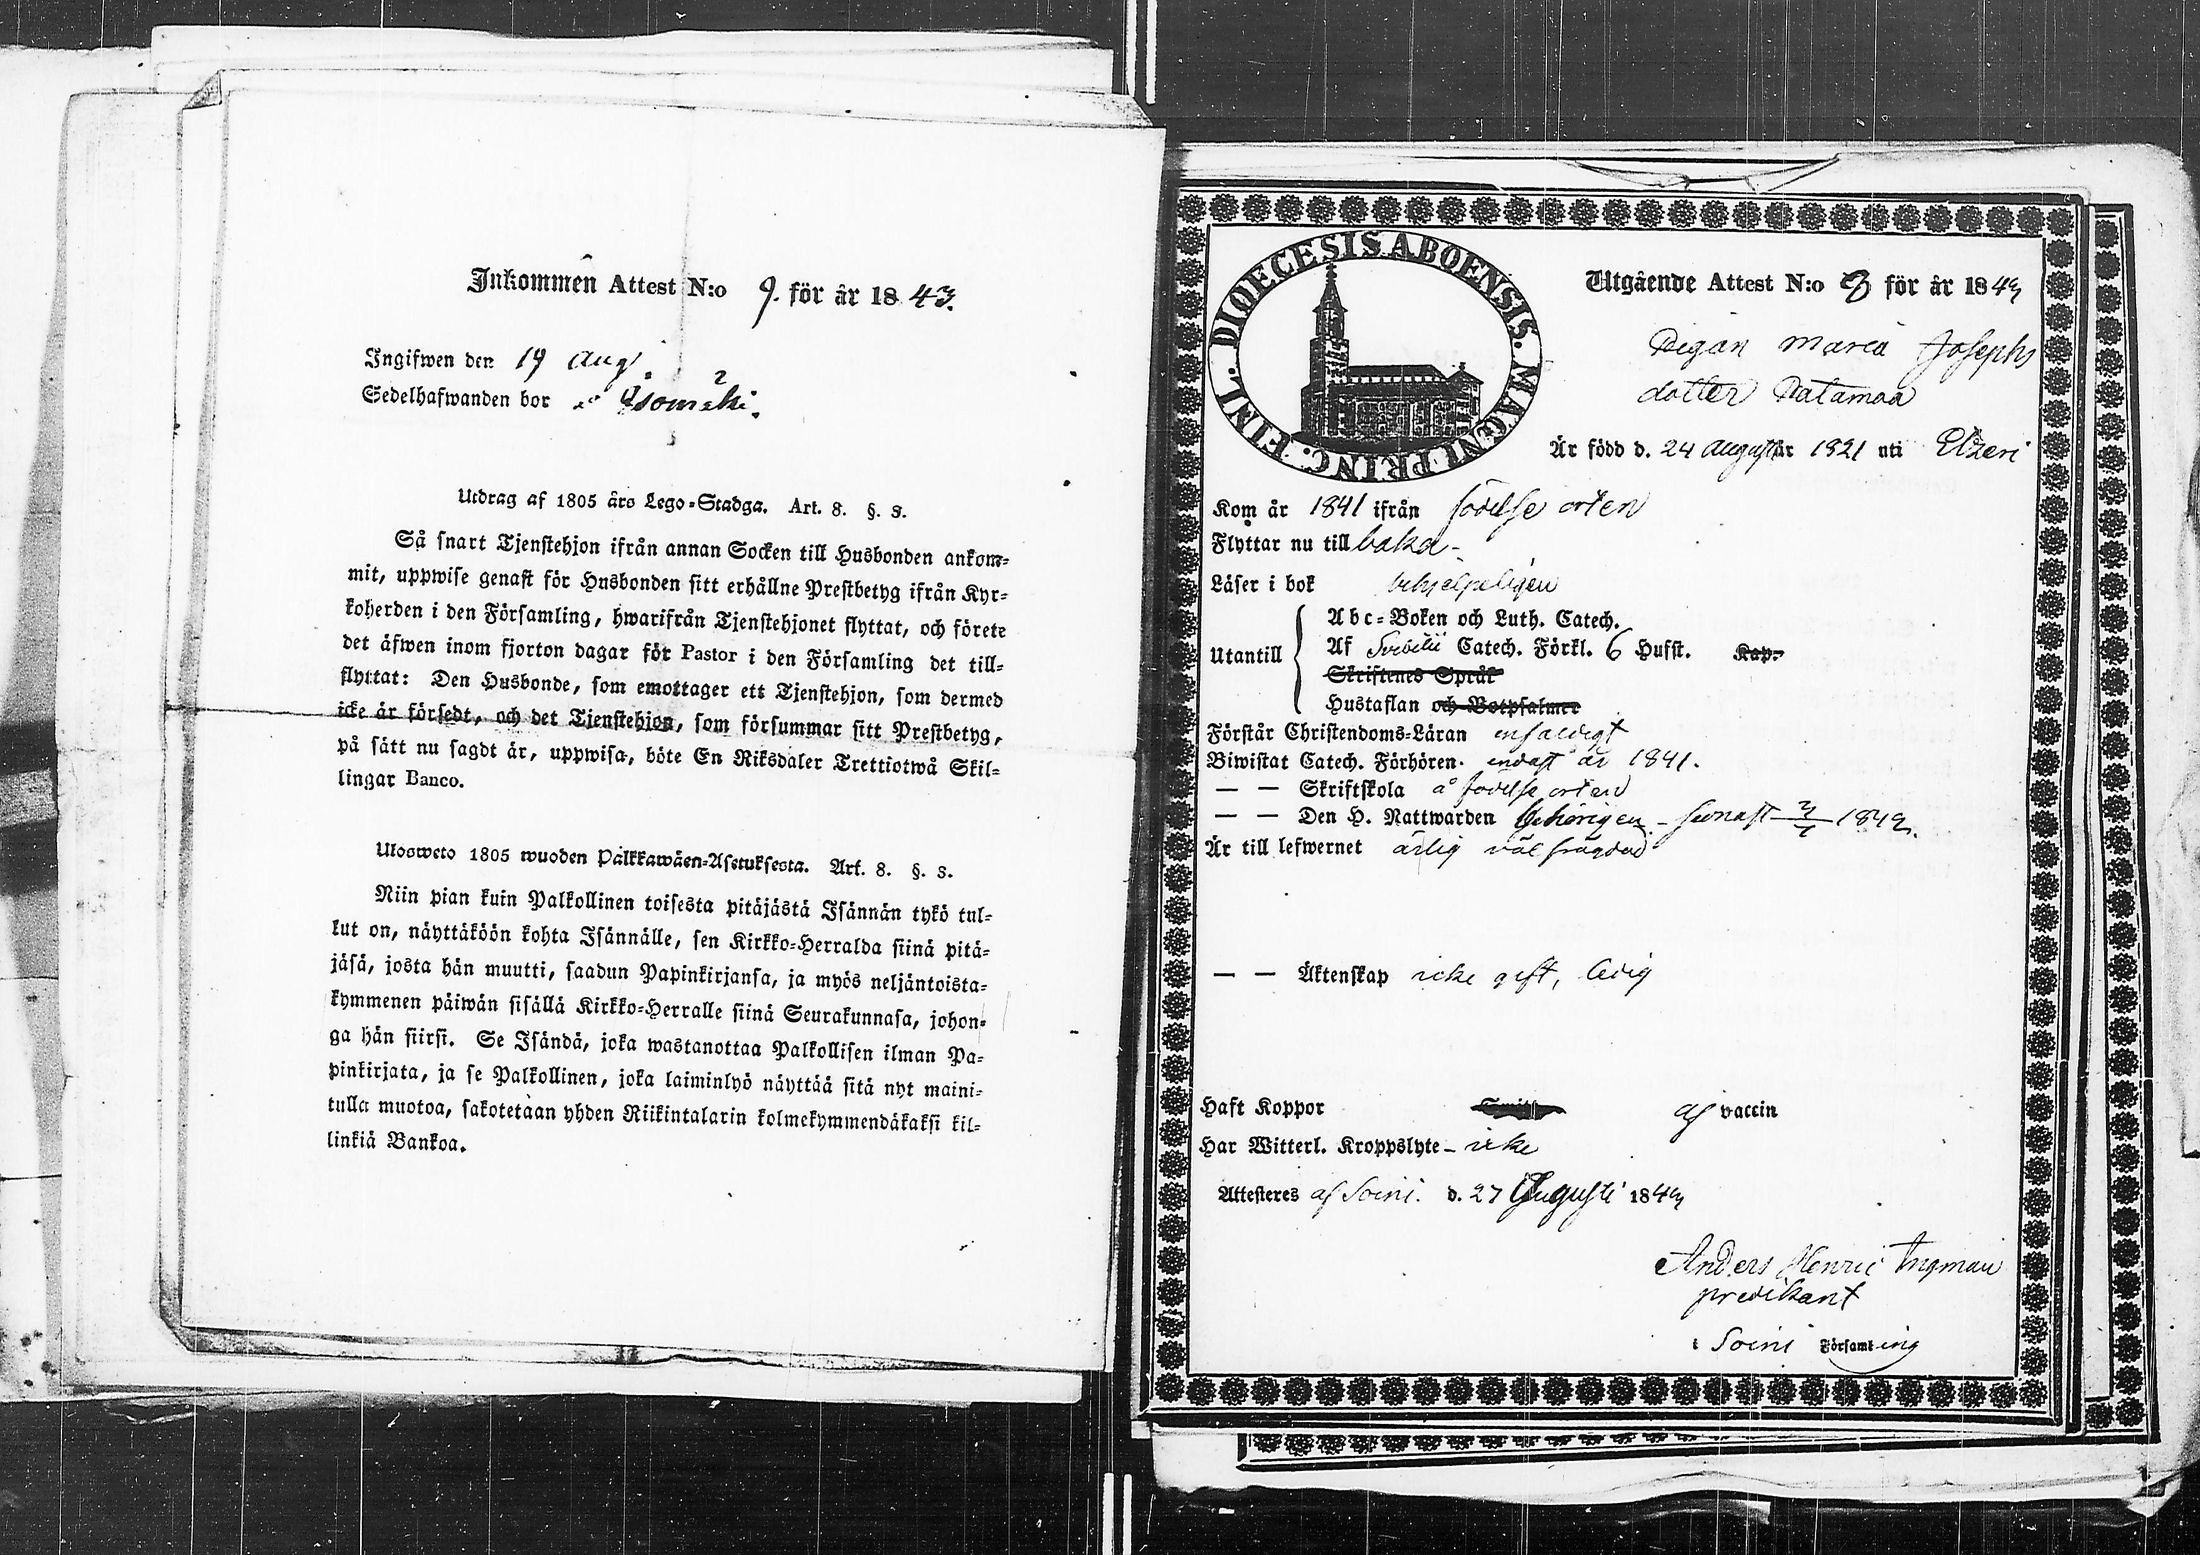 Inkommen Attest N:o 9. för år 1843.
Ingifwen den 19 Aug.
Sedelhafwanden bor
Utdrag af 1805 års Lego-Stadga. Art. 8. §. 3.
Så snart Tjenstehjon ifrån annan Socken till Husbonden ankom-
mit, uppwise genast för Husbonden sitt erhållne Prestbetyg ifrån Kyr-
koherden i den Församling, hwarifrån Tjenstehjonet flyttat, och förete
det äfwen inom fjorton dagar för Pastor i den Församling det till-
flyttat: Den Husbonde, som emottager ett Tjenstehjon, som dermed
icke är försedt, och det Tjenstehjon, som försummar sitt Prestbetyg,
på sätt nu sagdt är, uppwisa, böte En Riksdaler Trettiotwå Skil-
lingar Banco.
Ulosweto 1805 wuoden Palkkawäen-Asetuksesta. Art. 8. §. 3.
Niin pian kuin Palkollinen toisesta pitäjästä Isännän tykö tul-
lut on, näyttäköön kohta Isännälle, sen Kirkko-Herralda siinä pitä-
jäsä, josta hän muutti, saadun Papinkirjansa, ja myös neljäntoista-
kymmenen päiwän sisällä Kirkko-Herralle siinä Seurakunnasa, johon-
ga hän siirsi. Se Isändä, joka wastanottaa Palkollisen ilman Pa-
pinkirjata, ja se Palkollinen, joka laiminlyö näyttää sitä nyt maini-
tulla muotoa, sakotetaan yhden Riikintalarin kolmekymmendäkaksi kil-
linkiä Bankoa.
DIOECESIS ABOENSIS. MAGNI PRINC. FINL.
Utgående Attest N:o för år 18
Pigan Maria Josephs
dotter
Är född d. 24 Augusti år 1821 uti Etzeri
Kom år 1841 ifrån födelse orten
Flyttar nu till baka -
Läser i bok behjelpeligen
Utantill
Abc-Boken och Luth. Catech.
Af Svebelii Catech. Förkl. 6 Hufst. Kap.
Skriftenes Språk
Hustaflan och Botpsalmer
Förstår Christendoms-Läran enfaldigt
Biwistat Catech. Förhören. endast år 1841.
— — Skriftskola å födelse orten
— — Den H. Nattwarden behörigen - senast
Är till lefwernet ärlig väl frägdad
— — Äktenskap icke gift, ledig
Haft Koppor af vaccin
Har Witterl. Kroppslyte - icke
Attesteres af Soini. d. 27 Augusti 18
Anders Henric Ingman
predikant
i Soini Församling